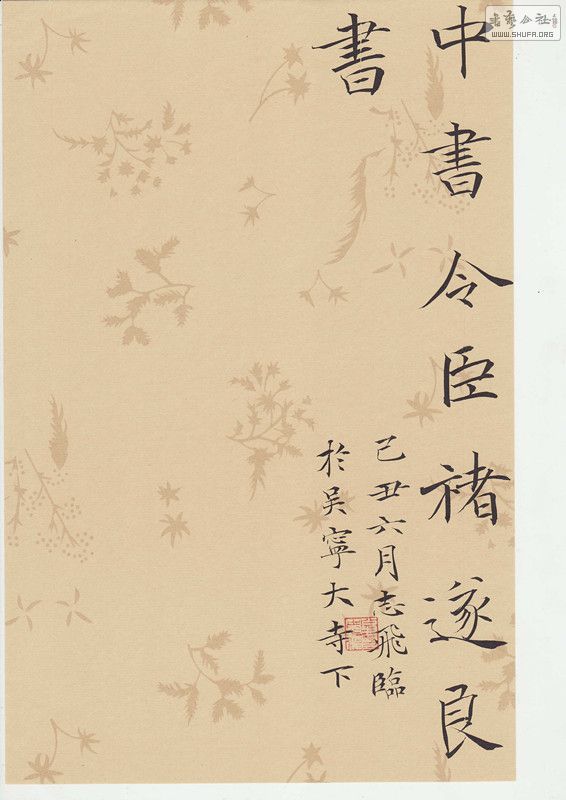 中書令臣褚遂良
書
己丑六月志飛臨
於吴寧大寺下
WWW.SHUFA.ORG